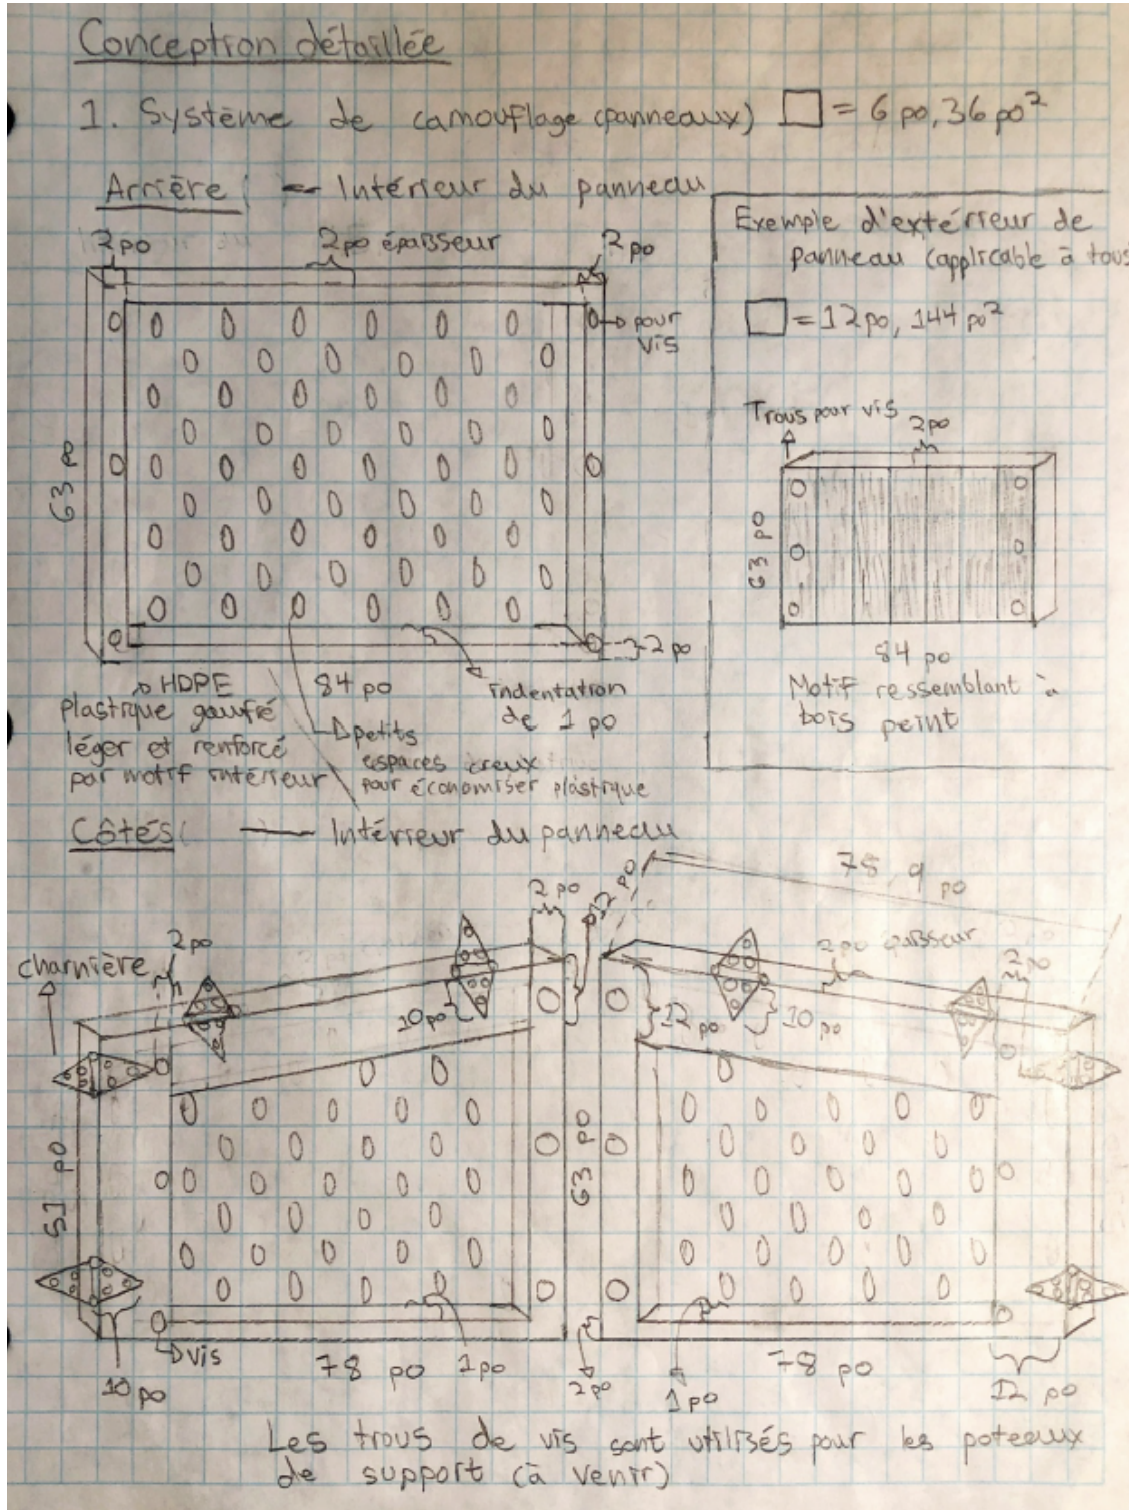 Conception détaillée
1. Système de camouflage (panneaux) □ = 6 po, 36 po²
Arrière : — Intérieur du panneau
2po
2po épaisseur
2 po
pour
vis
63 po
2 po
84 po
indentation
de 1 po
HDPE
plastique gaufré
léger et renforcé
par motif intérieur
petits
espaces creux
pour économiser plastique
Exemple d'extérieur de
panneau (applicable à tous
□ = 12po, 144 po²
Trous pour vis
2po
63 po
84 po
Motif ressemblant à
bois peint
Côtés : — Intérieur du panneau
charnière
2po
10po
2 po
12 po
78,9 po
2po épaisseur
2 po
12 po
10 po
51 po
63 po
vis
10 po
78 po
1po
2po
1po
78 po
12 po
Les trous de vis sont utilisés pour les poteaux
de support (à venir)